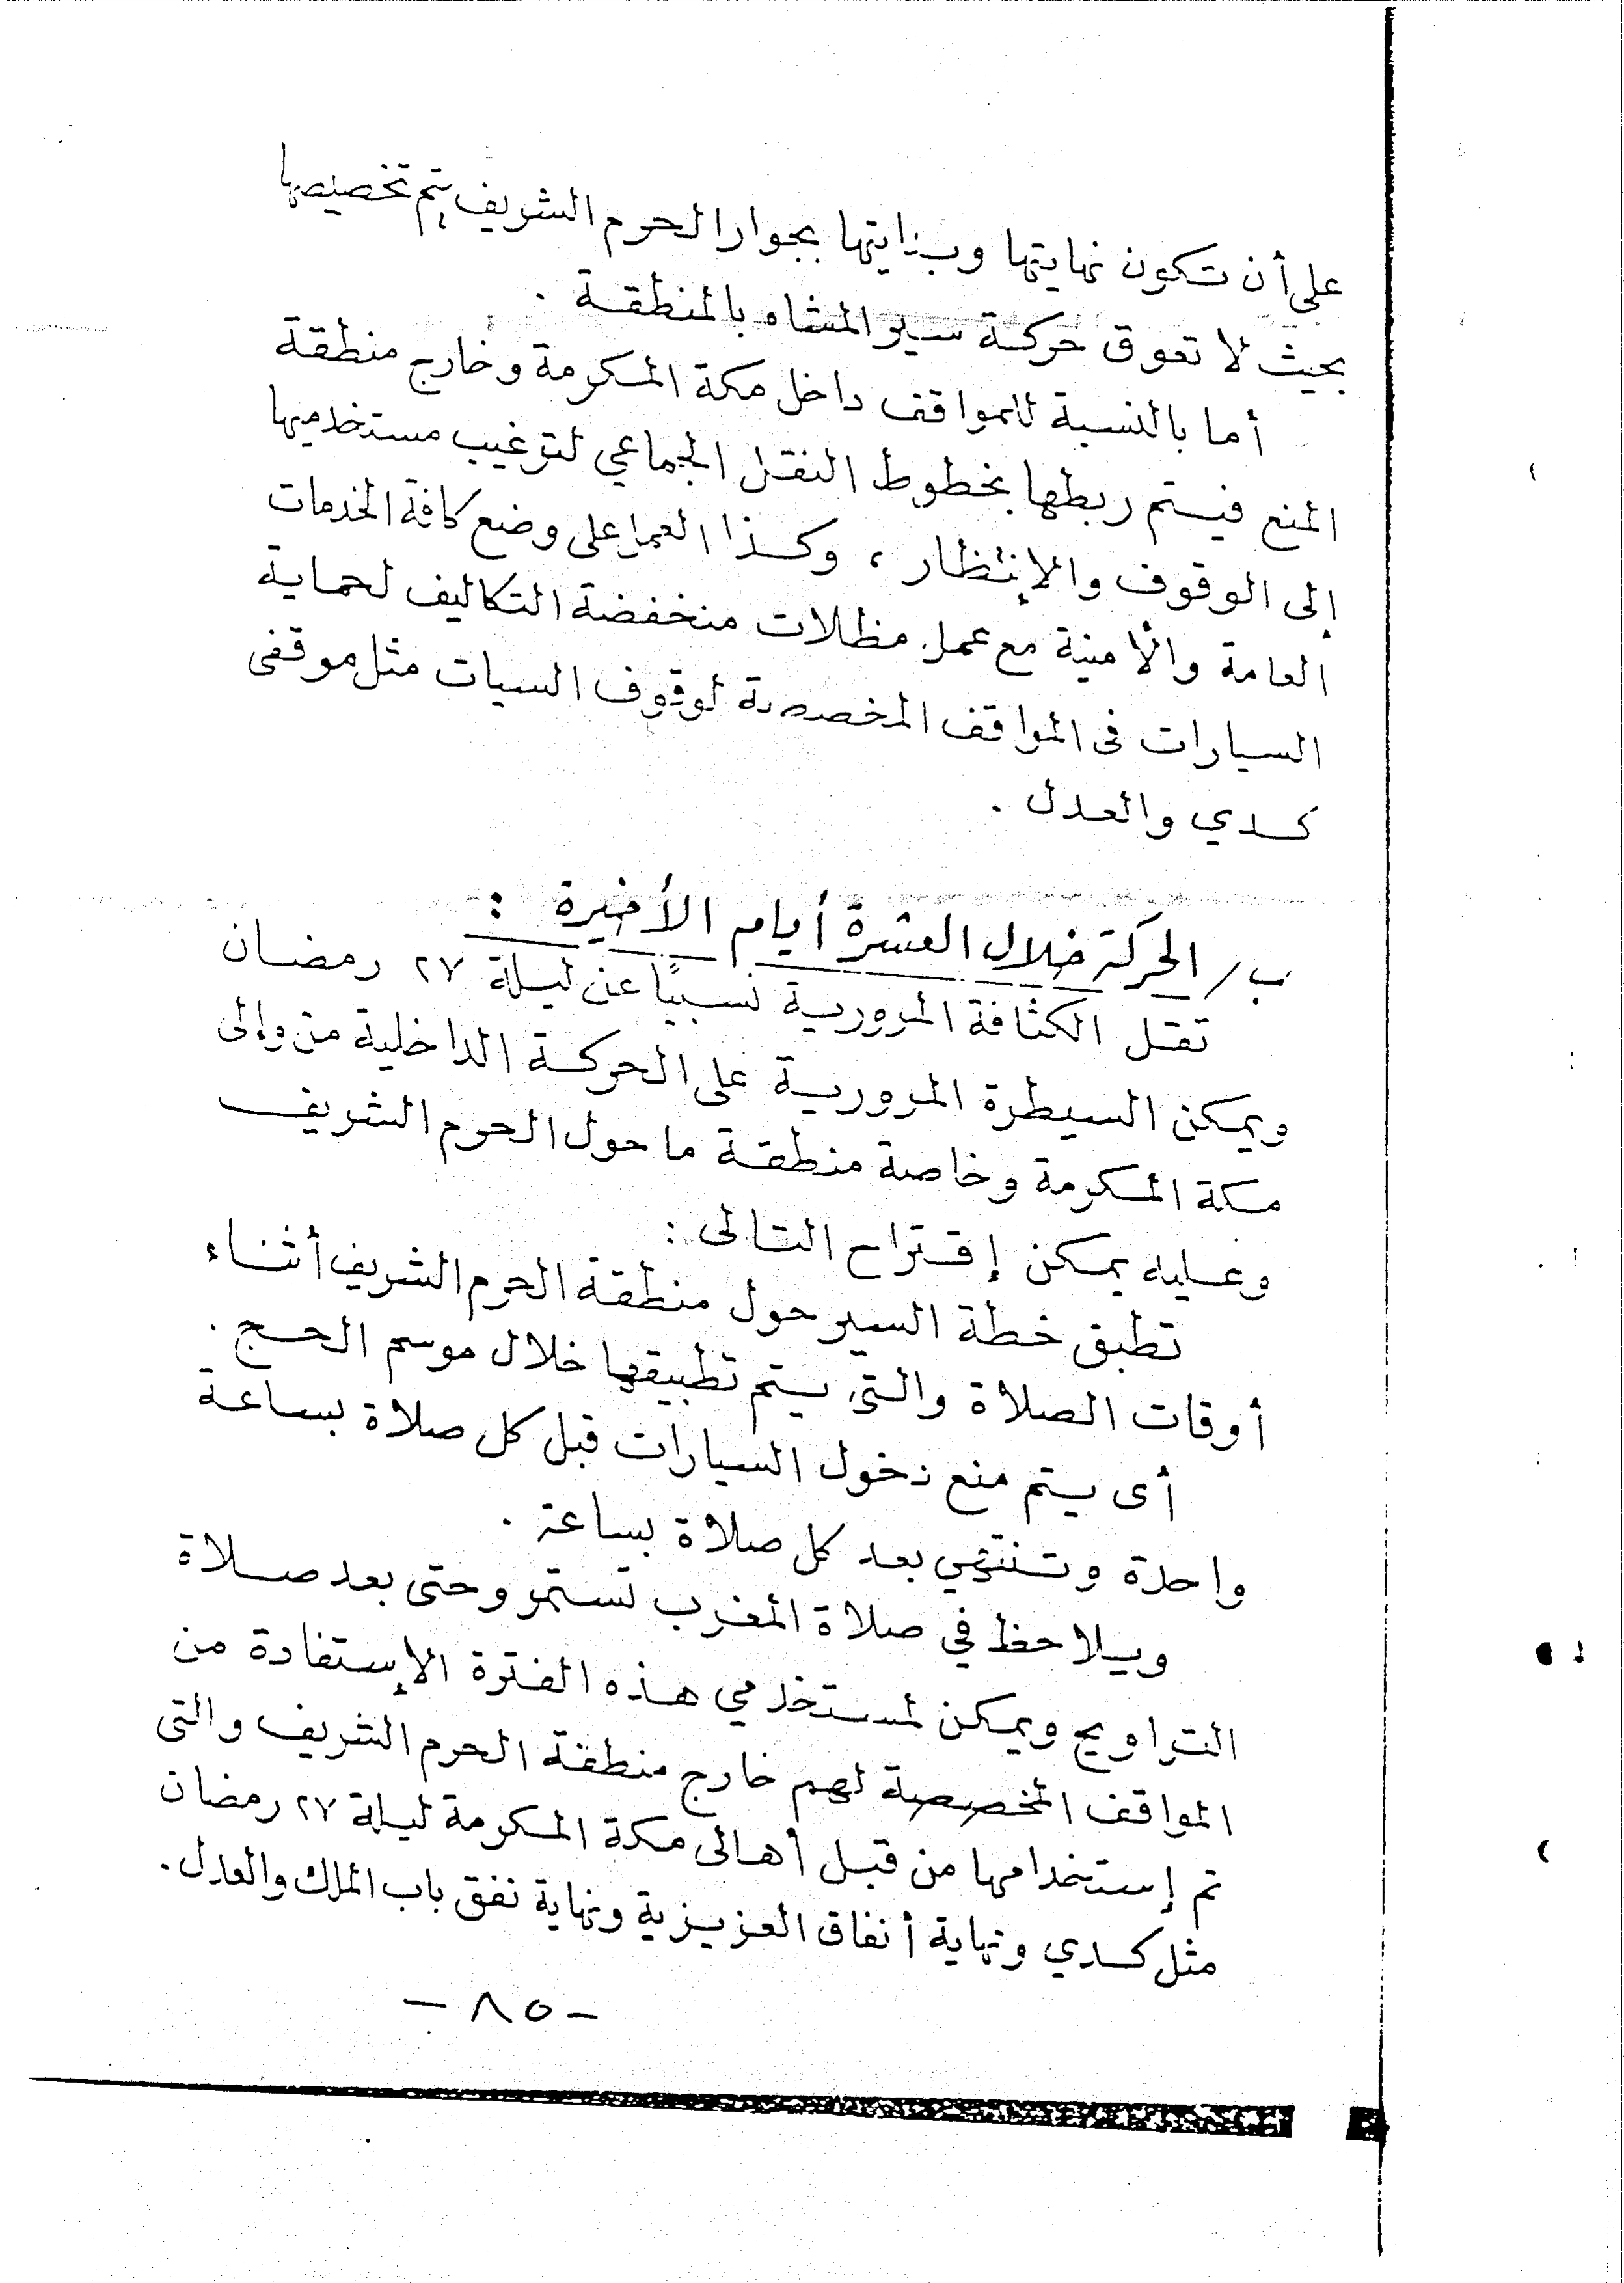 على أن تكون نهايتها وبدايتها بجوار الحرم الشريف يتم تخصيصها
بحيث لا تعوق حركة سير المشاه بالمنطقة .
أما بالنسبة للمواقف داخل مكة المكرمة وخارج منطقة
المنع فيستم ربطها بخطوط النقل الجماعي لترغيب مستخدميها
إلى الوقوف والإنتظار ، وكذا العمل على وضع كافة الخدمات
العامة والأمنية مع عمل مظلات منخفضة التكاليف لحماية
السيارات فى المواقف المخصصة لوقوف السيات مثل موقفى
كدي والعدل .
ب/ الحركة خلال العشرة أيام الأخيرة :
تقل الكثافة المرورية نسبيًا عن ليلة ٢٧ رمضان
ويمكن السيطرة المرورية على الحركة الداخلية من وإلى
مكة المكرمة وخاصة منطقة ما حول الحرم الشريف
وعليه يمكن إقتراح التالى :
تطبق خطة السير حول منطقة الحرم الشريف أثناء
أوقات الصلاة والتى يستم تطبيقها خلال موسم الحج .
أى يستم منع دخول السيارات قبل كل صلاة بساعة
واحدة وتنتهي بعد كل صلاة بساعة .
ويلاحظ في صلاة المغرب تستمر وحتى بعد صلاة
التراويح ويمكن لمستخدمي هذه الفترة الإستفادة من
المواقف المخصصة لهم خارج منطقة الحرم الشريف والتى
تم إستخدامها من قبل أهالى مكة المكرمة ليلة ٢٧ رمضان
مثل كدي ونهاية أنفاق العزيزية ونهاية نفق باب الملك والعدل .
- ٨٥ -